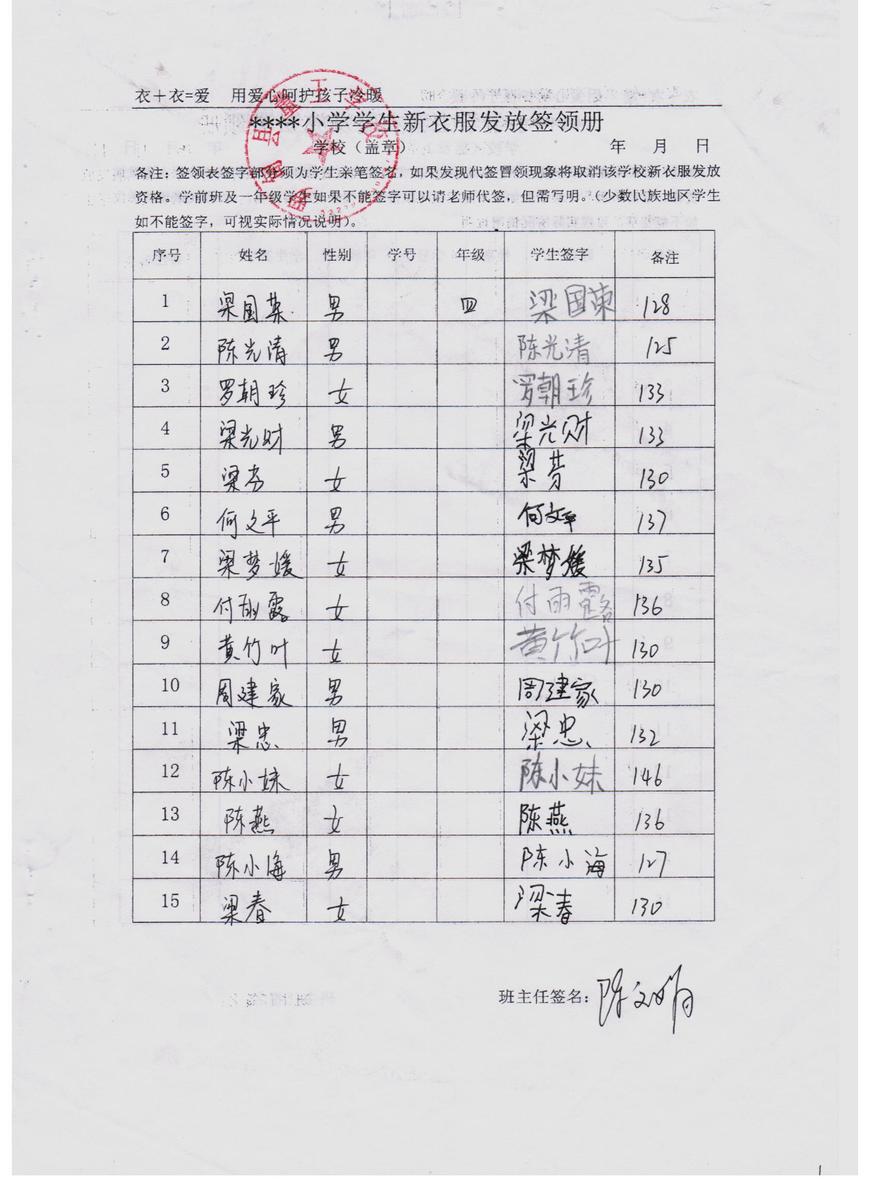 衣＋衣=爱 用爱心呵护孩子冷暖
****小学学生新衣服发放签领册
学校（盖章） 年 月 日
备注：签领表签字部分须为学生亲笔签名，如果发现代签冒领现象将取消该学校新衣服发放
资格。学前班及一年级学生如果不能签字可以请老师代签，但需写明。（少数民族地区学生
如不能签字，可视实际情况说明）。
序号 姓名 性别 学号 年级 学生签字 备注
1 梁国荣 男 四 梁国荣 128
2 陈光清 男 陈光清 125
3 罗朝珍 女 罗朝珍 133
4 梁光财 男 梁光财 133
5 梁芳 女 梁芳 130
6 何文平 男 何文平 137
7 梁梦媛 女 梁梦媛 135
8 付雨露 女 付雨露 136
9 黄竹叶 女 黄竹叶 130
10 周建家 男 周建家 130
11 梁忠 男 梁忠 132
12 陈小妹 女 陈小妹 146
13 陈燕 女 陈燕 136
14 陈小海 男 陈小海 127
15 梁春 女 梁春 130
班主任签名：陈文娟